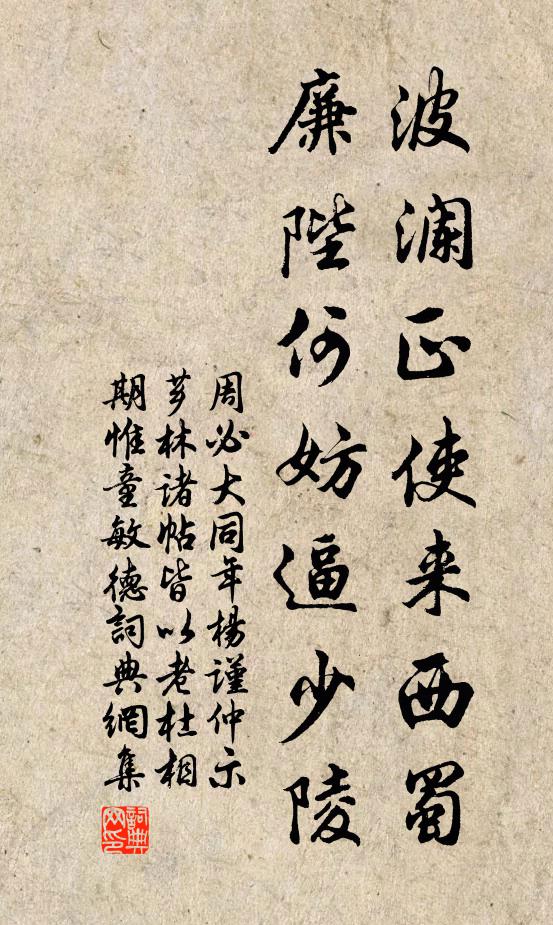 波澜正使来西蜀
廉陛何妨逼少陵
周必大同年楊謹仲示
芗林诸帖皆以老杜相
期惟童敏德詞典網集
詞典网印